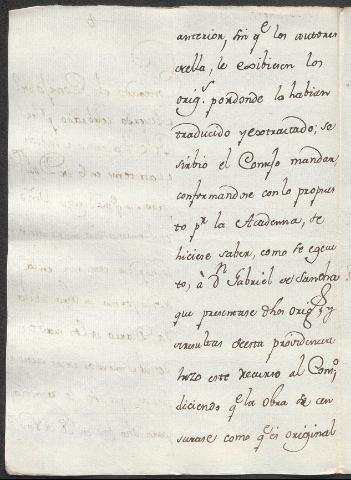 anterior, sin q.e los autores
de ella, le exibiesen los
orig.s por donde la habian
traducido y extractado; se
sirbio el Consejo mandar,
conformandose con lo propues
to p.r la Academia, se
hiciese saber, como se egecu
to, à d.n Gabriel de Sancha
que presentase dhos orig.s y
de resultas de esta providencia
hizo este recurso al Cons.o
diciendo q.e la obra de cen
surase como q.e es original